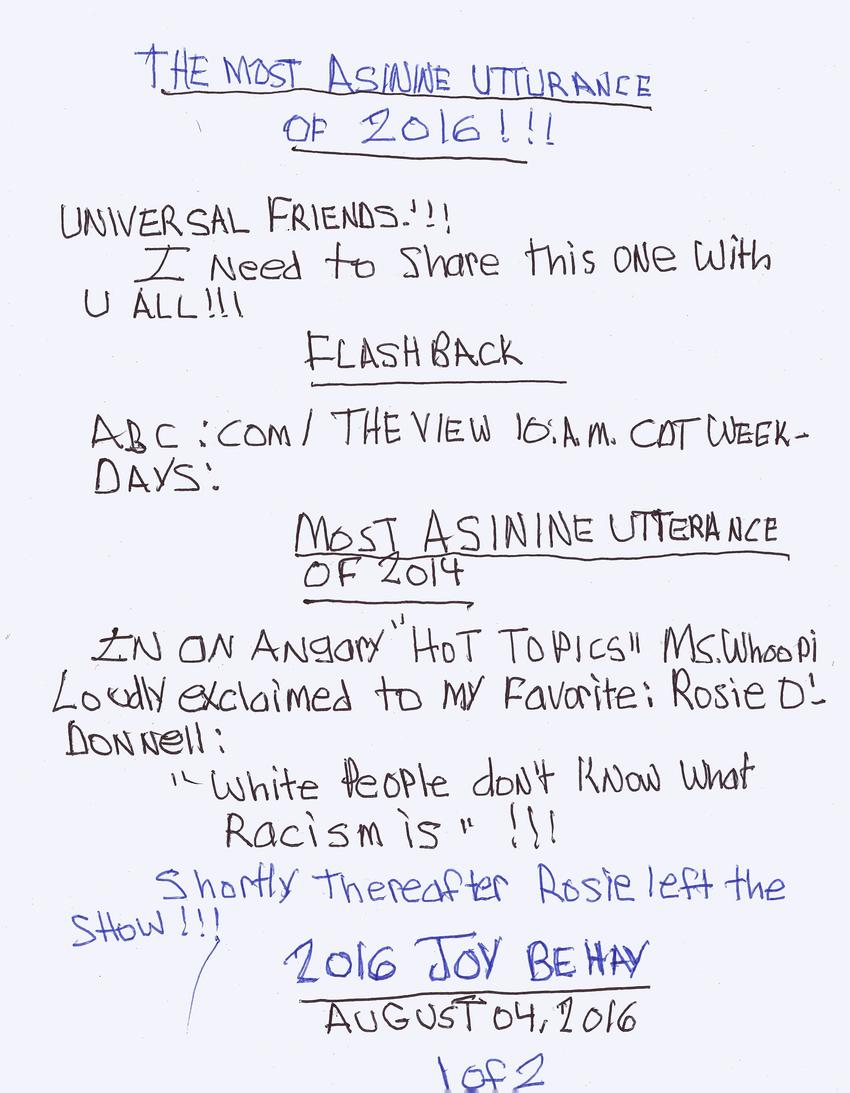 THE MOST ASININE UTTURANCE
OF 2016!!!
UNIVERSAL FRIENDS!!!
I Need to Share this ONe With
U ALL!!!
FLASHBACK
ABC:COM/ THE VIEW 10:A.M. CDT WEEK-
DAYS:
MOST ASININE UTTERANCE
OF 2014
IN ON ANgary "HOT TOPICS" Ms. Whoopi
Loudly exclaimed to MY Favorite: Rosie O'-
DONNell:
"White People don't KNow What
Racism is" !!!
Shortly Thereafter Rosie left the
SHOW!!!
2016 JOY BEHAY
AUGUST 04, 2016
1 of 2